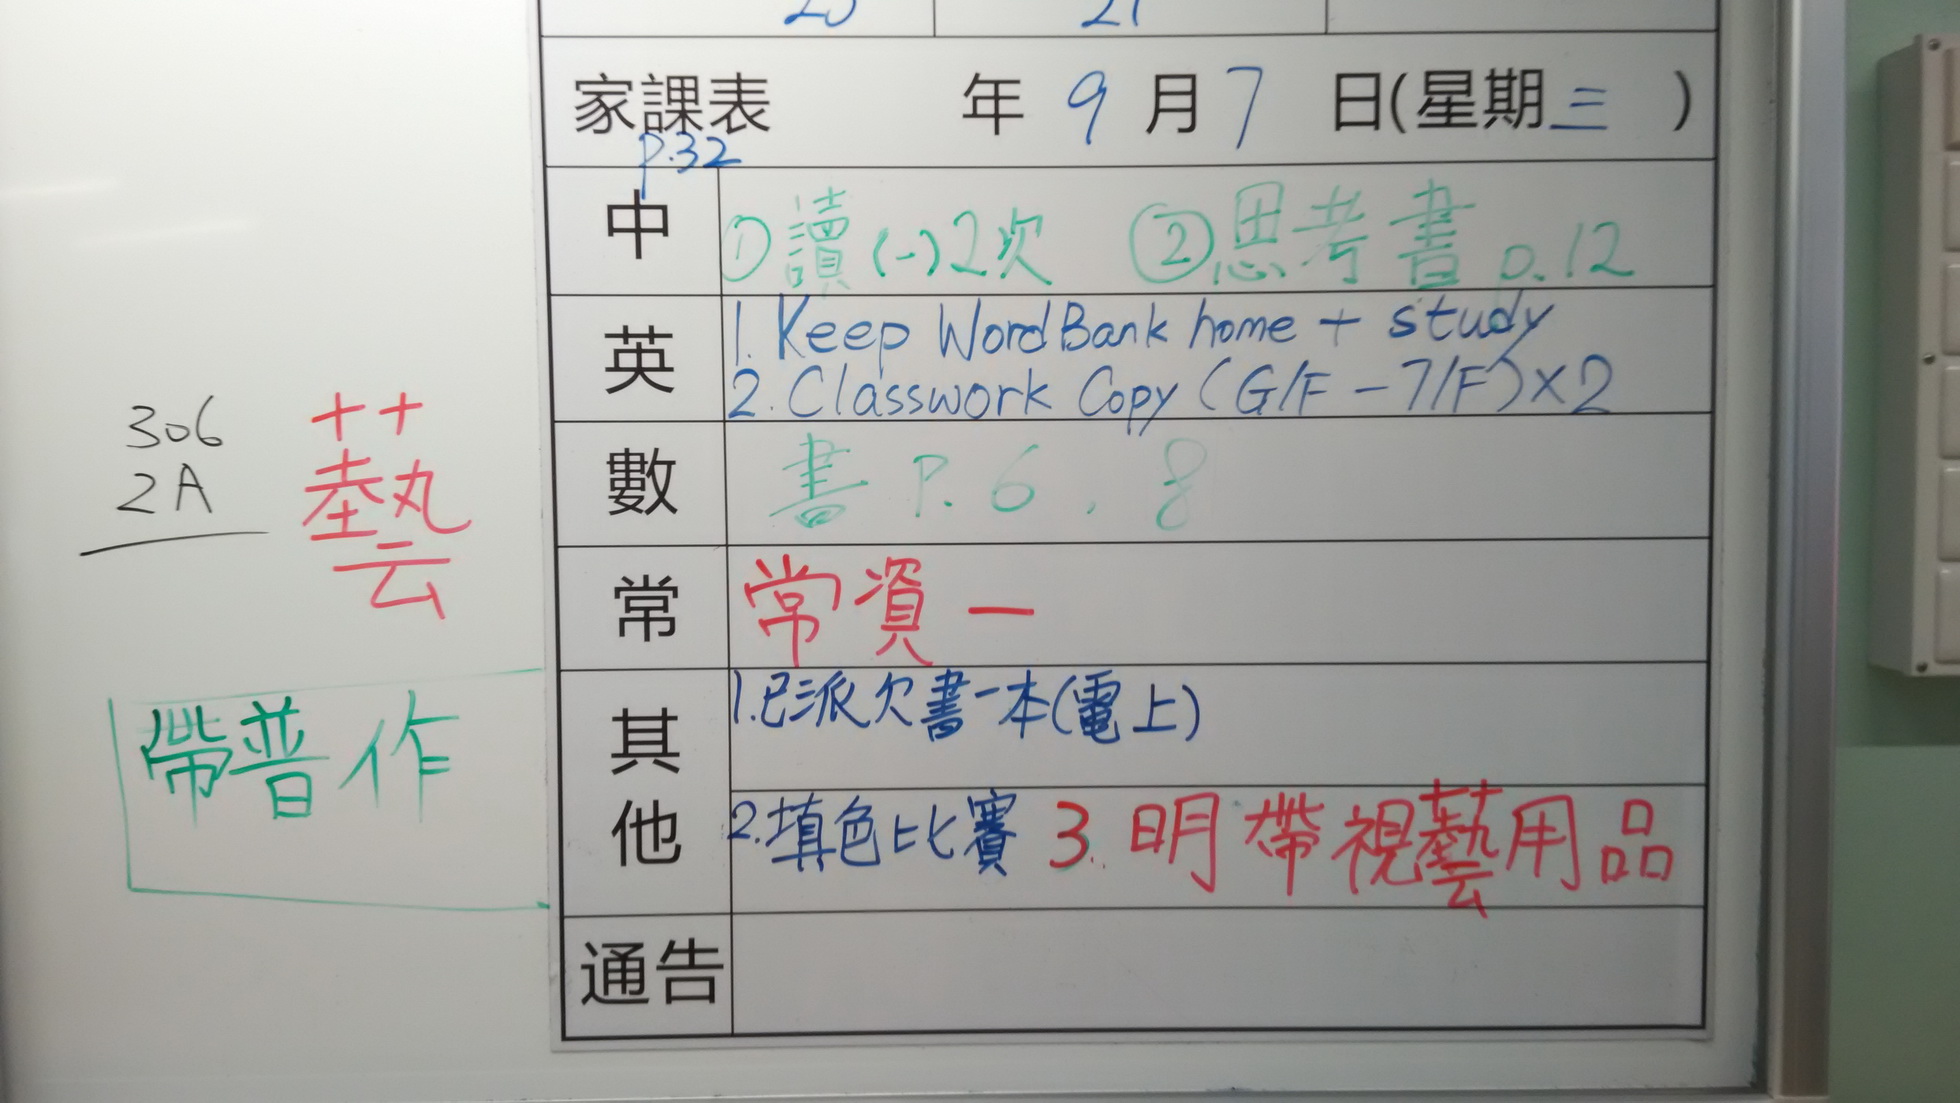 家課表 年 9 月 7 日(星期三 )
p.32
中 ①讀(一)2次 ②思考書 p.12
英 1. Keep Word Bank home + study
2. Classwork Copy (G/F - 7/F)×2
數 書 P. 6 . 8
常 常資一
其他 1.已派欠書一本(電上)
2.填色比賽 3. 明帶視藝用品
通告
306
2A
藝
帶普作